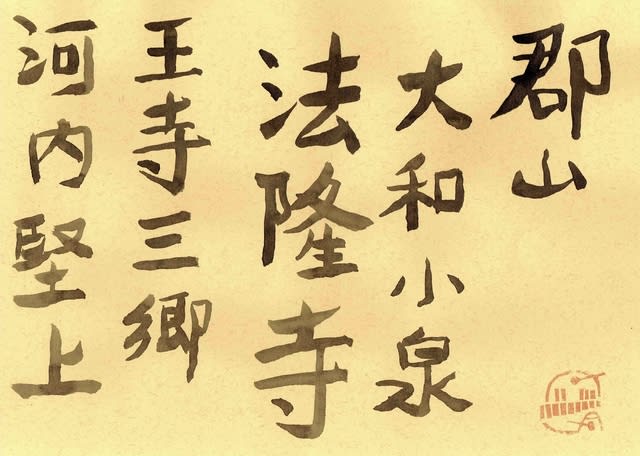 郡山
大和小泉
法隆寺
王寺三郷
河内堅上